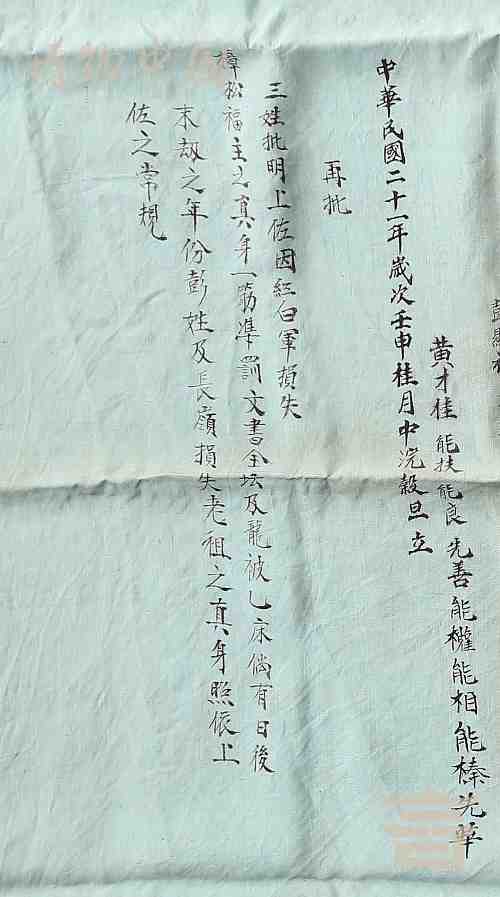 黃才桂 能扶 能良 先善 能權 能相 能榛 先華
中華民國二十一年歲次壬申桂月中浣穀旦立
再批
三姓批明上佐因紅白軍損失
樟松福主之真身一筋準罰文書全坛及龍被乚床倘有日後
末劫之年份彭姓及長嶺損失老祖之真身照依上
佐之常規